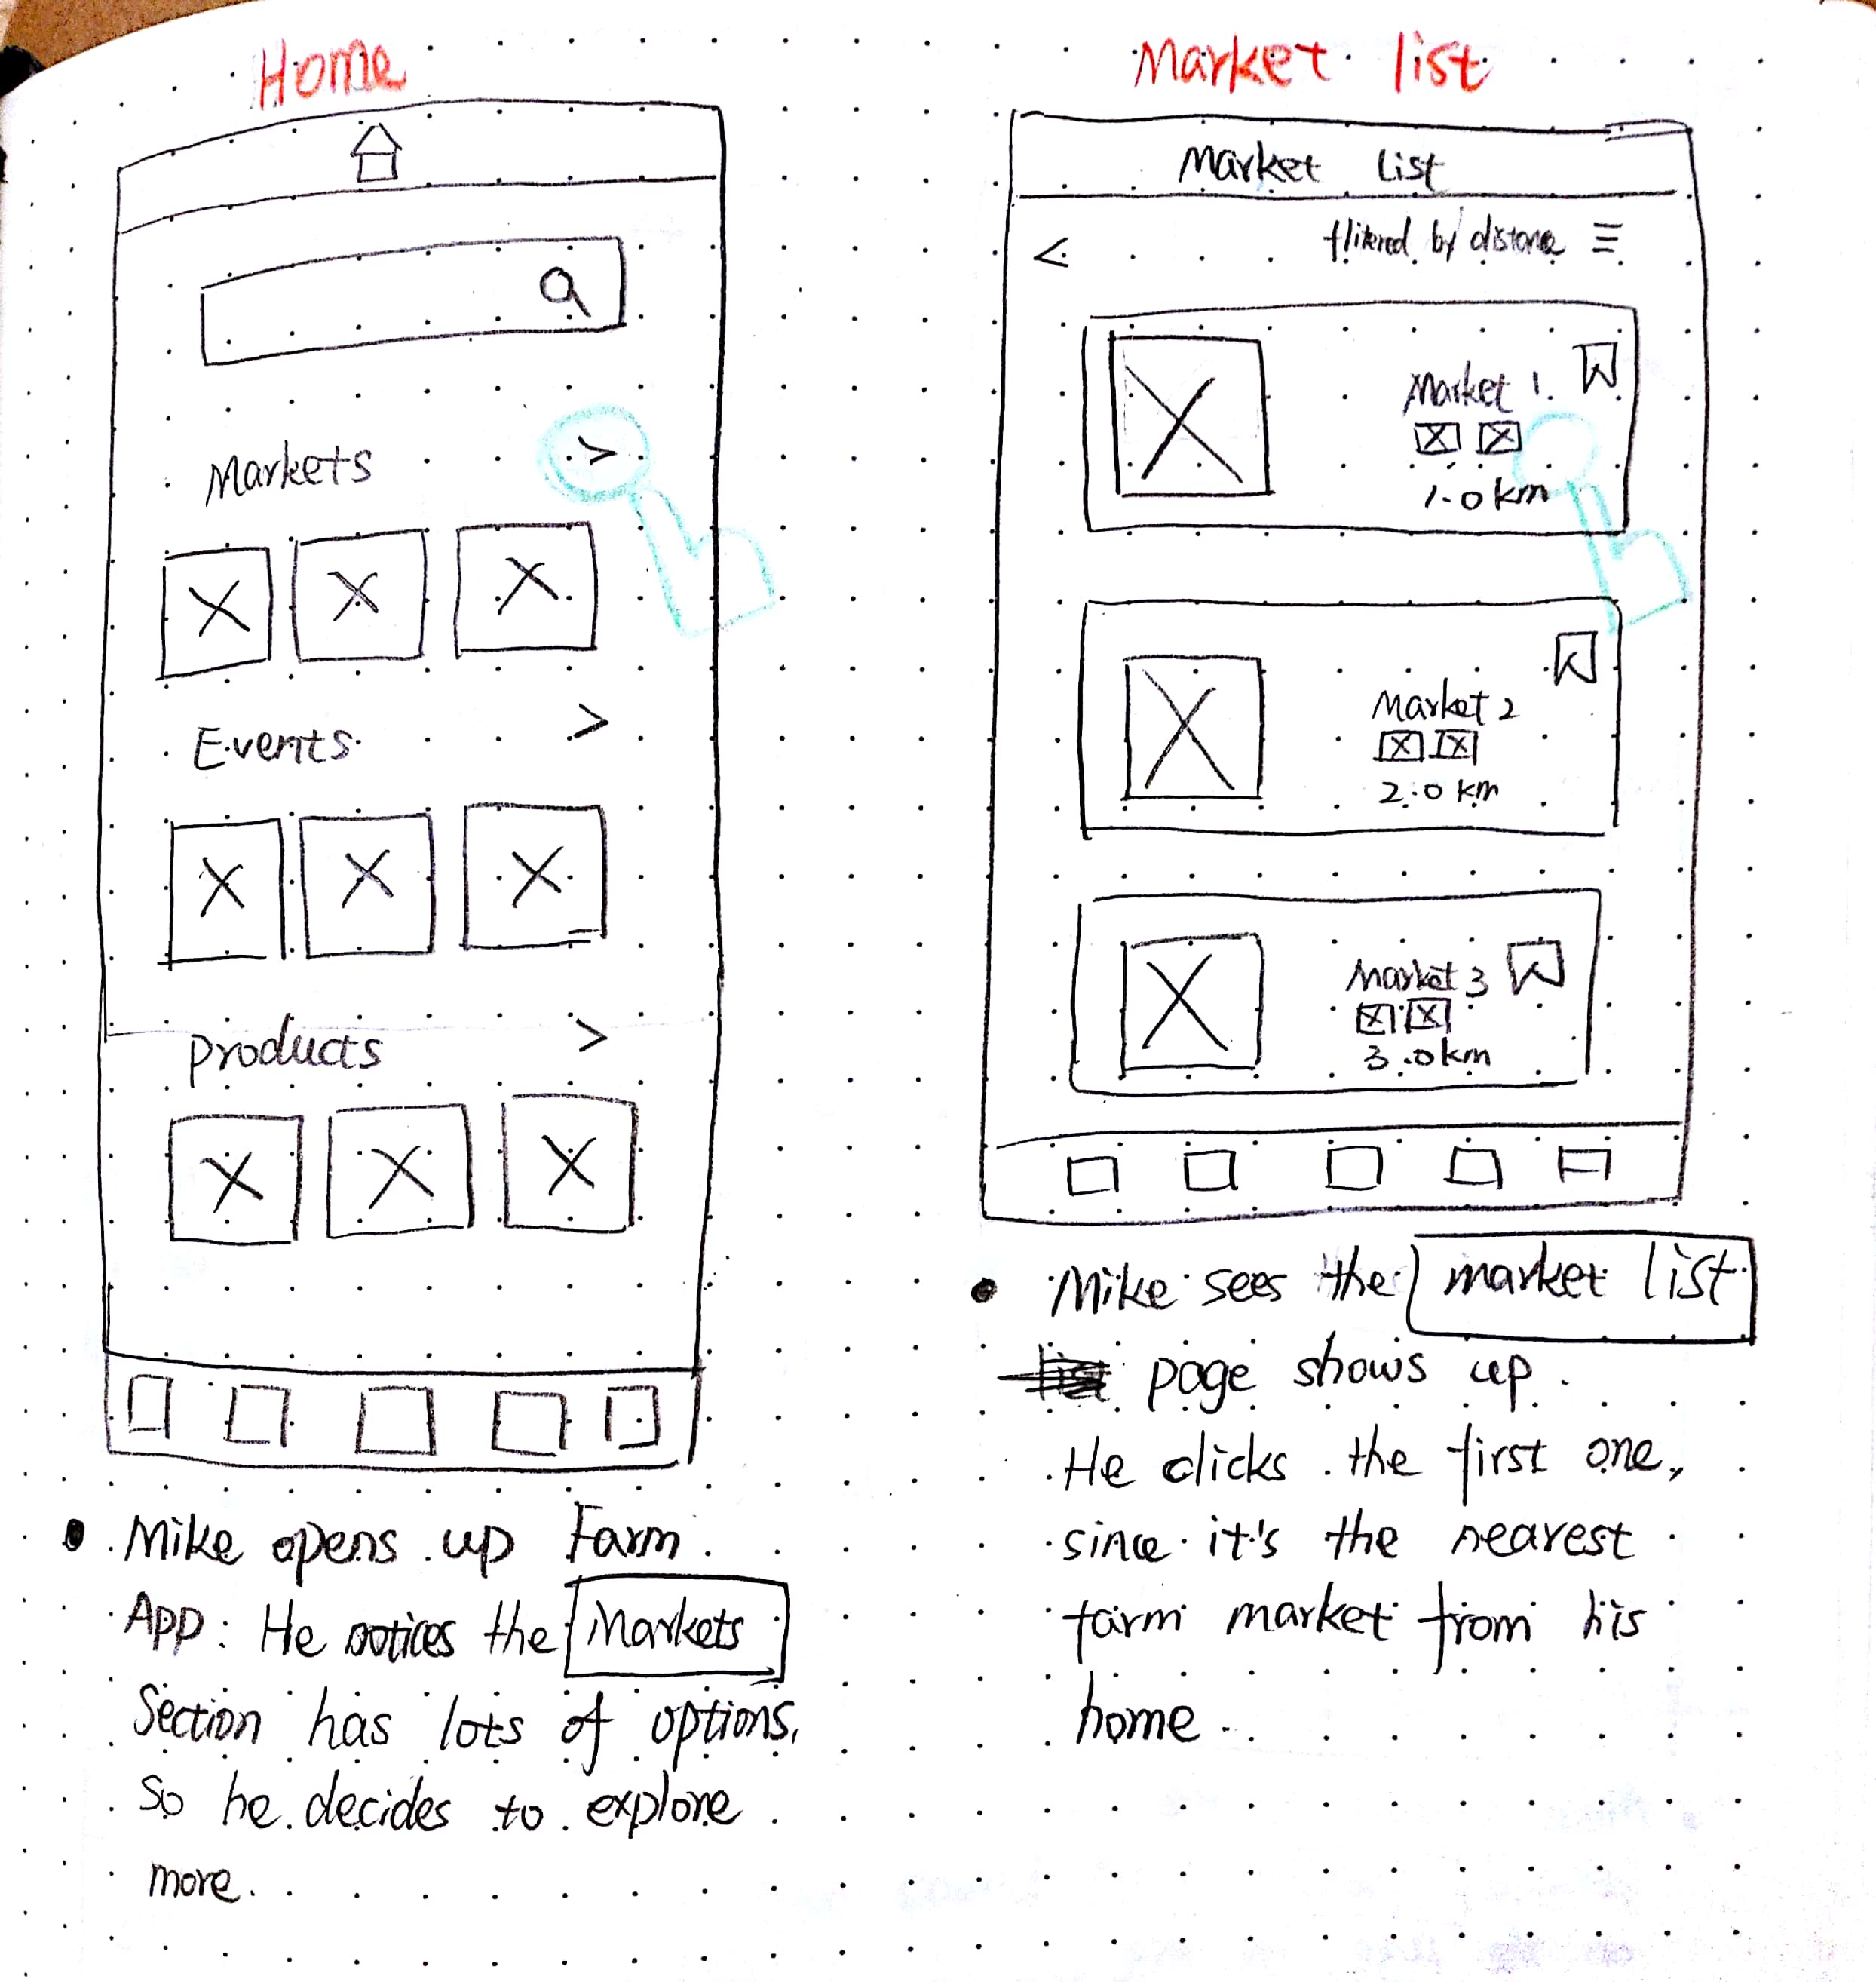 Home
Markets >
Events >
products >
Mike opens up Farm
App. He notices the Markets
Section has lots of options,
So he decides to explore
more.
Market list
Market List
<
flitered by distance
Market 1
1.0 km
Market 2
2.0 km
Market 3
3.0 km
Mike sees the market list
page shows up.
He clicks the first one,
since it's the nearest
farm market from his
home.